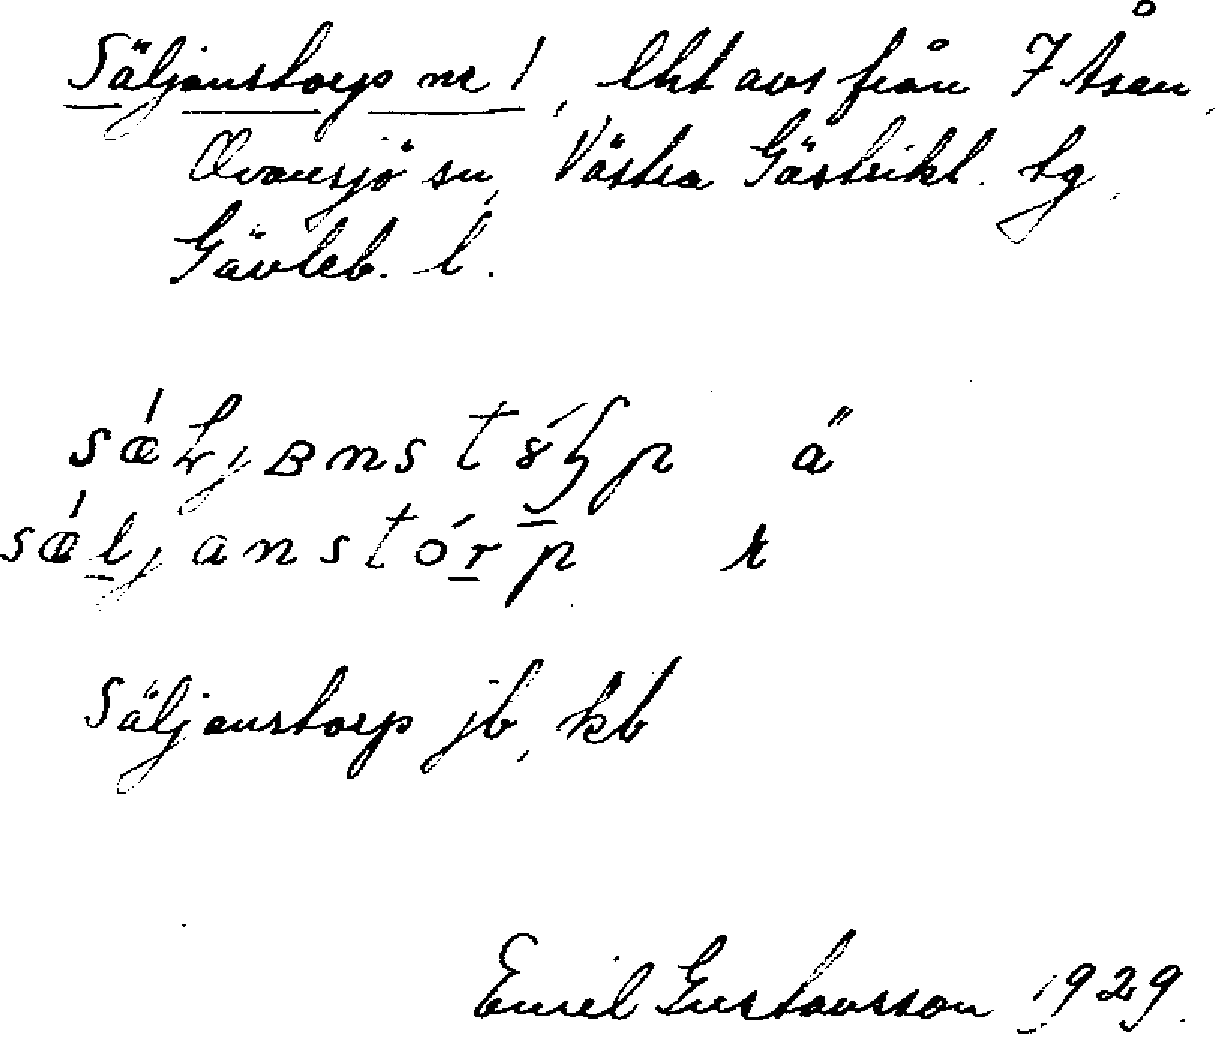 Säljanstorp nr 1, lht avs från 7 Åsen,
Ovansjö sn, Västra Gästrikl. tg,
Gävleb. l.
á̈
sǽljanstórp t
Säljanstorp jb, kb
Emil Gustavsson 1929.